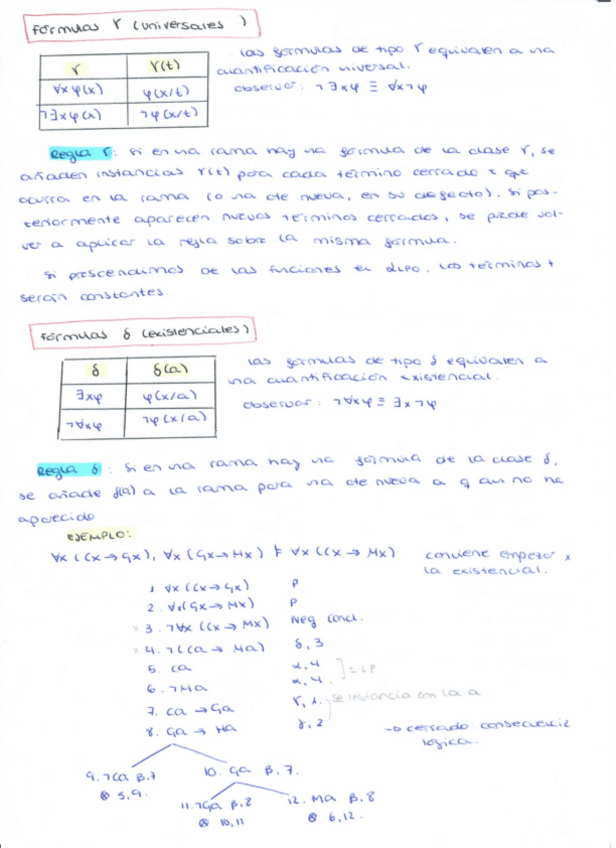 fórmulas γ (universales)
γ γ(t)
∀xφ(x) φ(x/t)
¬∃xφ(x) ¬φ(x/t)
las fórmulas de tipo γ equivalen a una
cuantificación universal.
observar: ¬∃xφ ≡ ∀x¬φ
Regla γ: si en una rama hay una fórmula de la clase γ, se
añaden instancias γ(t) para cada término cerrado t que
ocurra en la rama (o cte nueva, en su defecto). Si pos-
teriormente aparecen nuevos términos cerrados, se puede vol-
ver a aplicar la regla sobre la misma fórmula.
Si prescindimos de las funciones en dLPO, los términos t
serán constantes.
fórmulas δ (existenciales)
δ δ(a)
∃xφ φ(x/a)
¬∀xφ ¬φ(x/a)
las fórmulas de tipo δ equivalen a
una cuantificación existencial.
observar: ¬∀xφ ≡ ∃x¬φ
Regla δ: Si en una rama hay una fórmula de la clase δ,
se añade δ(a) a la rama para una cte nueva a q aun no ha
aparecido
EJEMPLO:
∀x(Cx→Gx), ∀x(Gx→Mx) ⊧ ∀x(Cx→Mx) conviene empezar x
la existencial.
1. ∀x(Cx→Gx) P
2. ∀x(Gx→Mx) P
3. ¬∀x(Cx→Mx) Neg concl.
4. ¬(Ca→Ma) δ, 3
5. Ca α, 4
6. ¬Ma α, 4. ] = LP
7. Ca→Ga γ, 1. se instancia con la a
8. Ga→Ma γ, 2
→ cerrado consecuencia
lógica.
9. ¬Ca β,7 10. Ga β,7.
⊗ 5,9.
11. ¬Ga β,8 12. Ma β,8
⊗ 10,11 ⊗ 6,12.